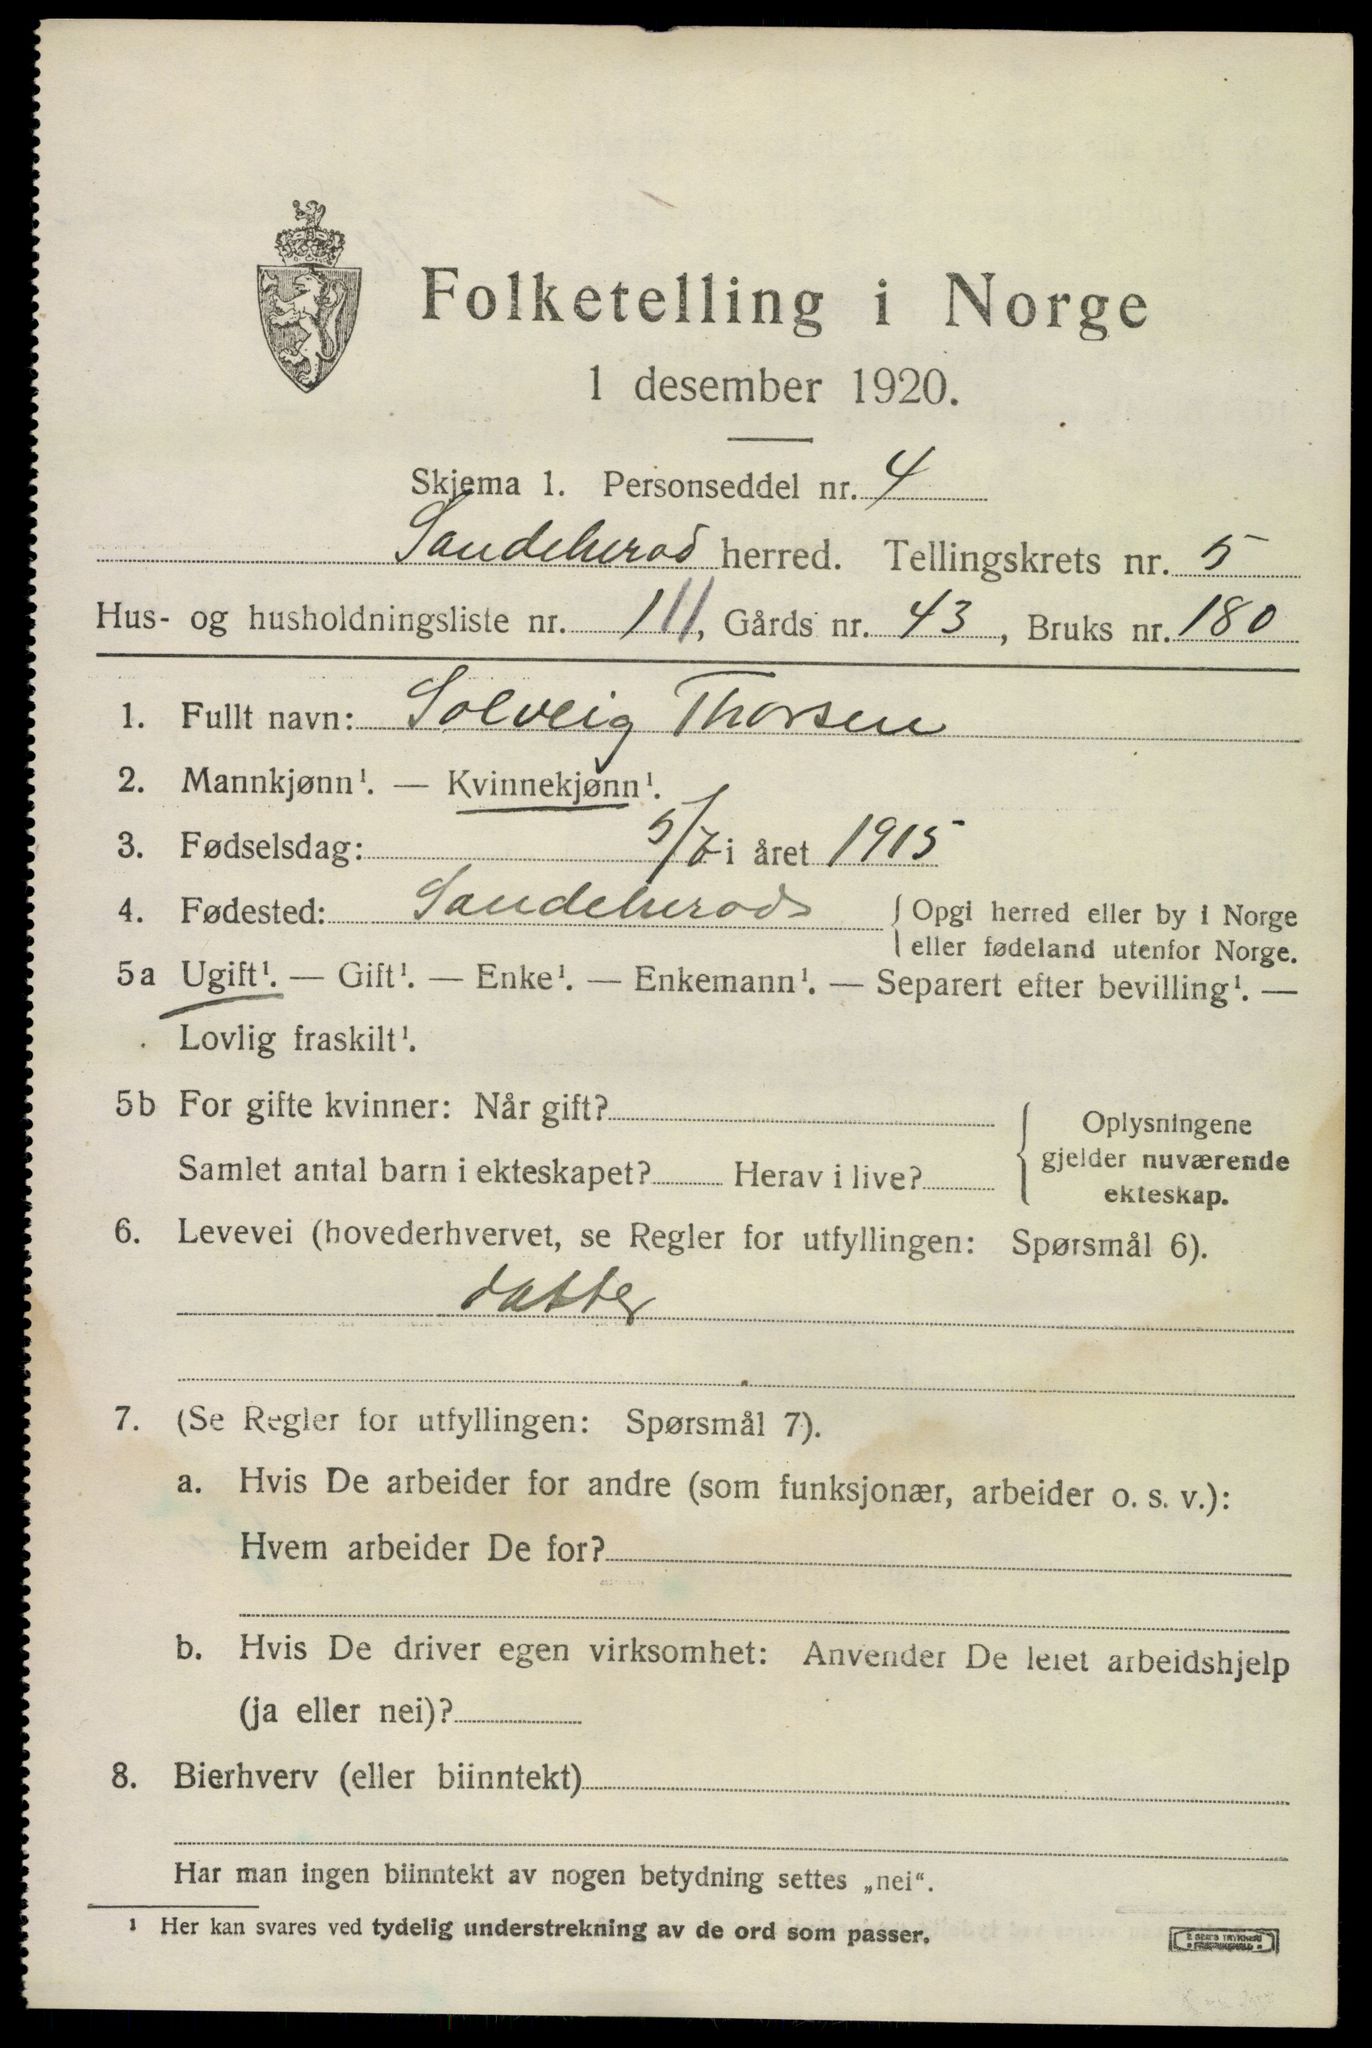 Folketelling i Norge
1 desember 1920.
Skjema 1. Personseddel nr. 4
Sandeherad herred. Tellingskrets nr. 5
Hus- og husholdningsliste nr. 111, Gårds nr. 43, Bruks nr. 180
1. Fullt navn: Solveig Thorsen
2. Mannkjønn¹. — Kvinnekjønn¹.
3. Fødselsdag: 5/7 i året 1915
4. Fødested: Sandeherad { Opgi herred eller by i Norge
eller fødeland utenfor Norge.
5a Ugift¹. — Gift¹. — Enke¹. — Enkemann¹. — Separert efter bevilling¹. —
Lovlig fraskilt¹.
5b For gifte kvinner: Når gift?
Samlet antal barn i ekteskapet? Herav i live?
Oplysningene
gjelder nuværende
ekteskap.
6. Levevei (hovederhvervet, se Regler for utfyllingen: Spørsmål 6).
datter
7. (Se Regler for utfyllingen: Spørsmål 7).
a. Hvis De arbeider for andre (som funksjonær, arbeider o. s. v.):
Hvem arbeider De for?
b. Hvis De driver egen virksomhet: Anvender De leiet arbeidshjelp
(ja eller nei)?
8. Bierhverv (eller biinntekt)
Har man ingen biinntekt av nogen betydning settes „nei“.
¹ Her kan svares ved tydelig understrekning av de ord som passer.